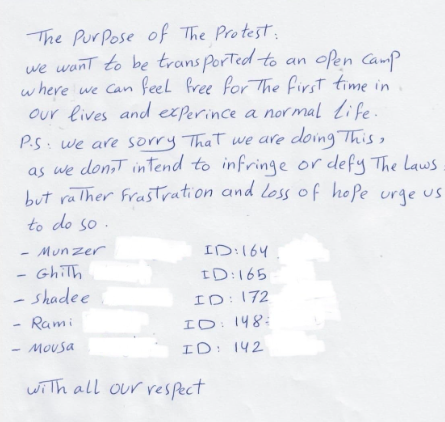 The Purpose of The Protest:
we want to be transported to an open camp
where we can feel free for The first time in
our lives and experince a normal life.
P.S: we are sorry That we are doing This,
as we don,t intend to infringe or defy The Laws
but rather Frastration and Loss of hope urge us
to do so.
- Munzer ID:164
- Ghith ID:165
- shadee ID: 172
- Rami ID: 148
- Mousa ID: 142
with all our respect